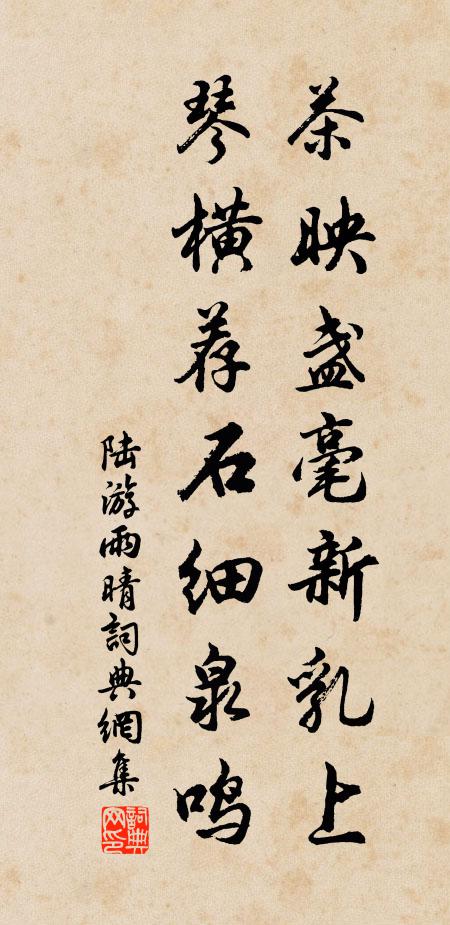 茶映盏毫新乳上
琴横荐石细泉鸣
陆游雨晴詞典網集
詞典网印